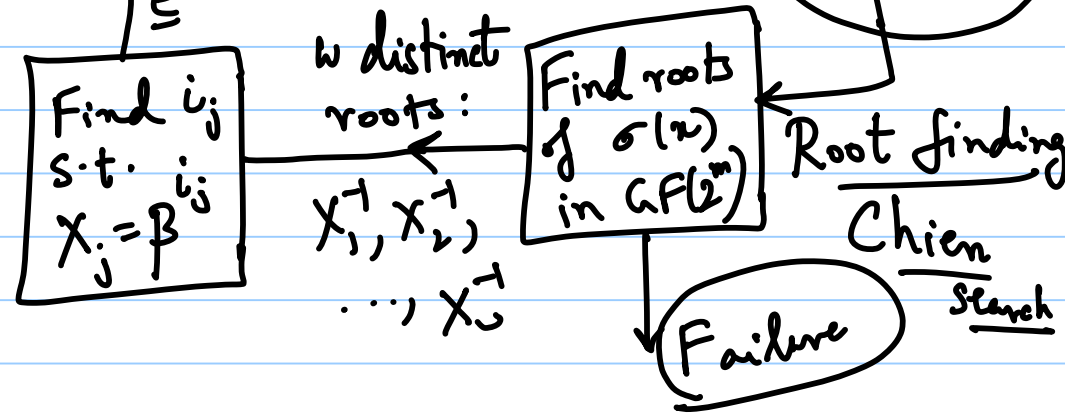 e
Find i_j
s.t.
X_j = β^{i_j}
w distinct
roots:
X_1^{-1}, X_2^{-1},
..., X_ω^{-1}
Find roots
of σ(x)
in GF(2^m)
Root finding
Chien
search
Failure